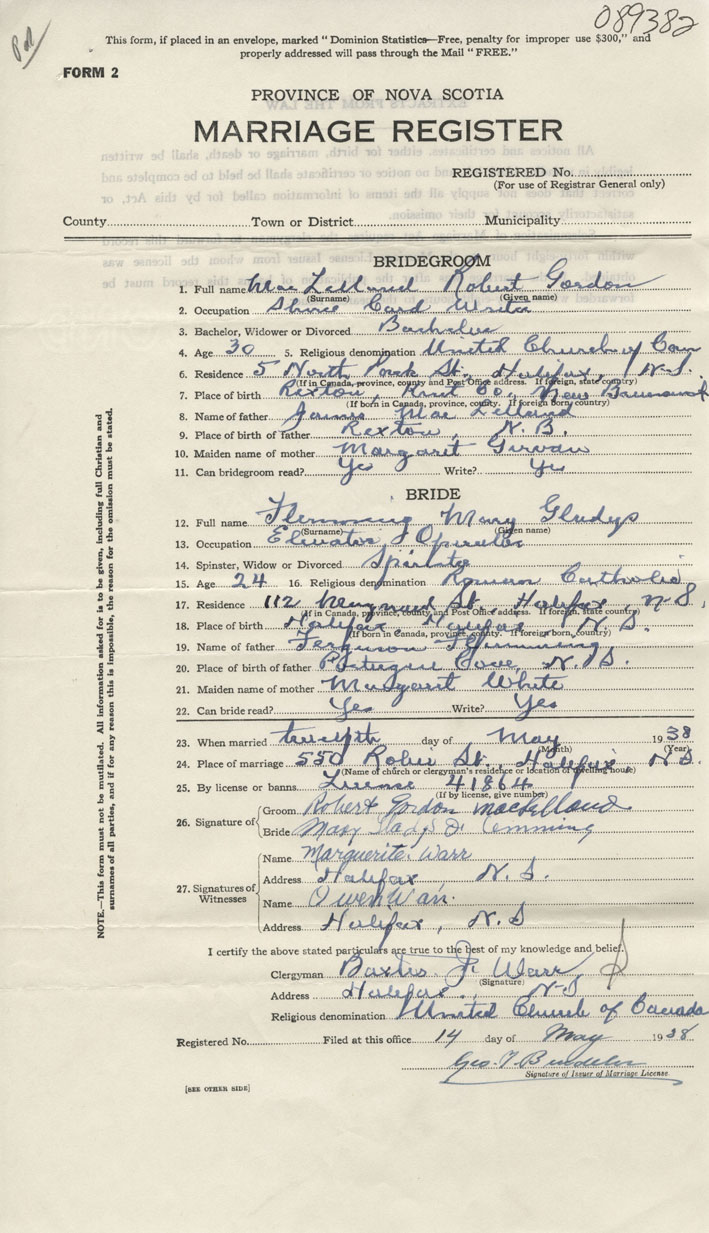 089382
Pd
This form, if placed in an envelope, marked "Dominion Statistics—Free, penalty for improper use $300," and
properly addressed will pass through the Mail "FREE."
FORM 2
PROVINCE OF NOVA SCOTIA
MARRIAGE REGISTER
REGISTERED No.
(For use of Registrar General only)
County Town or District Municipality
BRIDEGROOM
1. Full name MacLelland Robert Gordon
(Surname) (Given name)
2. Occupation Show Card Writer
3. Bachelor, Widower or Divorced Bachelor
4. Age 30 5. Religious denomination United Church of Can
6. Residence 5 North Park St., Halifax, N.S.
(If in Canada, province, county and Post Office address. If foreign, state country)
7. Place of birth Rexton, Kent Co., New Brunswick
(If born in Canada, province, county. If foreign born, country)
8. Name of father James MacLelland
9. Place of father Rexton, N.B.
10. Maiden name of mother Margaret Girvan
11. Can bridegroom read? Yes Write? Yes
BRIDE
12. Full name Flemming Mary Gladys
(Surname) (Given name)
13. Occupation Elevator Operator
14. Spinster, Widow or Divorced Spinster
15. Age 24 16. Religious denomination Roman Catholic
17. Residence 112 Maynard St. Halifax N.S.
(If in Canada, province, county and Post Office address. If foreign, state country)
18. Place of birth Halifax, Halifax, N.S.
(If born in Canada, province, county. If foreign born, country)
19. Name of father Ferguson Flemming
20. Place of birth of father Portugese Cove, N.S.
21. Maiden name of mother Margaret White
22. Can bride read? Yes Write? Yes
23. When married twelfth day of May 1938
(Month) (Year)
24. Place of marriage 550 Robie St., Halifax N.S.
(Name of church or clergyman's residence or location of dwelling house)
25. By license or banns License 41864
(If by license, give number)
26. Signature of Groom Robert Gordon MacLelland
Bride Mary Gladys Flemming
27. Signatures of Witnesses
Name Marguerite Warr
Address Halifax N.S.
Name Owen Warr
Address Halifax, N.S
I certify the above stated particulars are true to the best of my knowledge and belief.
Clergyman Baxter J. Warr
(Signature)
Address Halifax, N.S
Religious denomination United Church of Canada
Registered No. Filed at this office 14 day of May 1938
Geo. T.
Signature of Issuer of Marriage License.
[SEE OTHER SIDE]
NOTE.—This form must not be mutilated. All information asked for is to be given, including full Christian and
surnames of all parties, and if for any reason this is impossible, the reason for the omission must be stated.